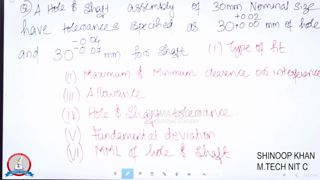 Q A Hole & Shaft assembly of 30mm Nominal size
have tolerances specified as 30 +0.02 +0.00 mm of hole
and 30 -0.04 -0.07 mm for shaft (I) Type of fit
(II) Maximum & Minimum clearence or interference
(III) Allowance
(IV) Hole & Shaft tolerance
(V) Fundamental deviation
(VI) MML of hole & shaft
SHINOOP KHAN
M.TECH NIT C